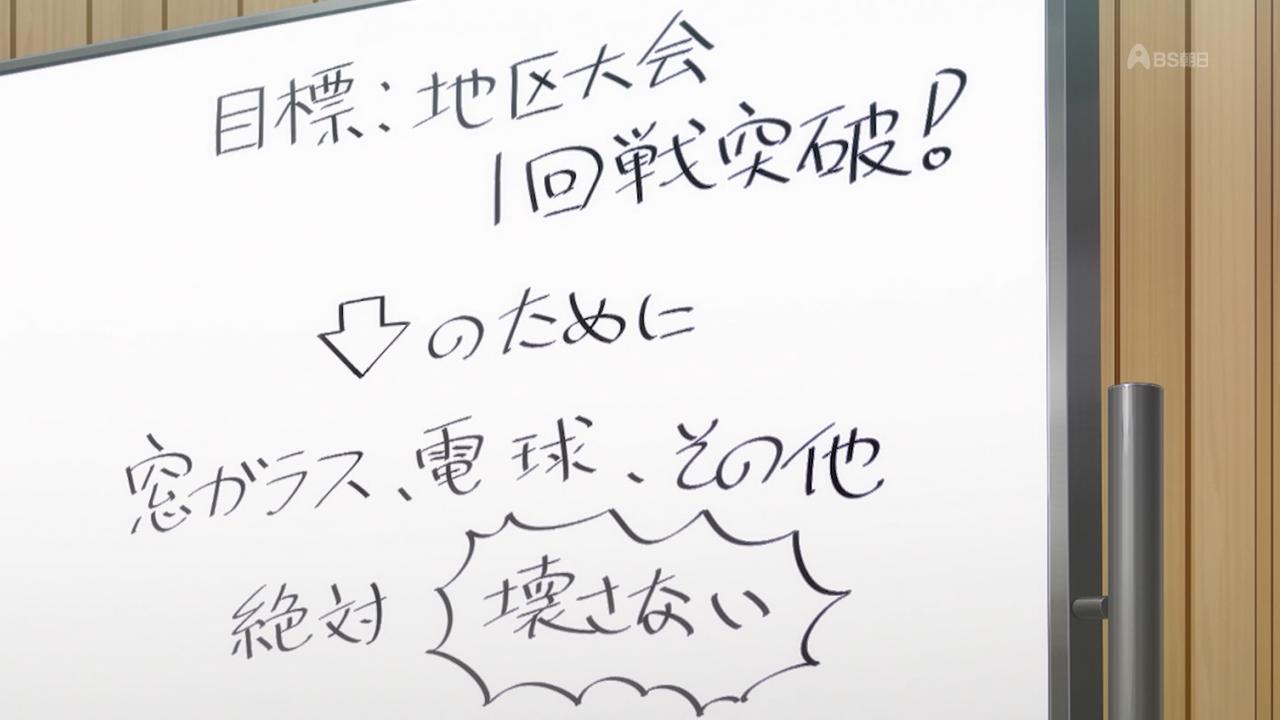 目標:地区大会
1回戦突破!
⇩のために
窓ガラス、電球、その他
絶対 壊さない
BS朝日